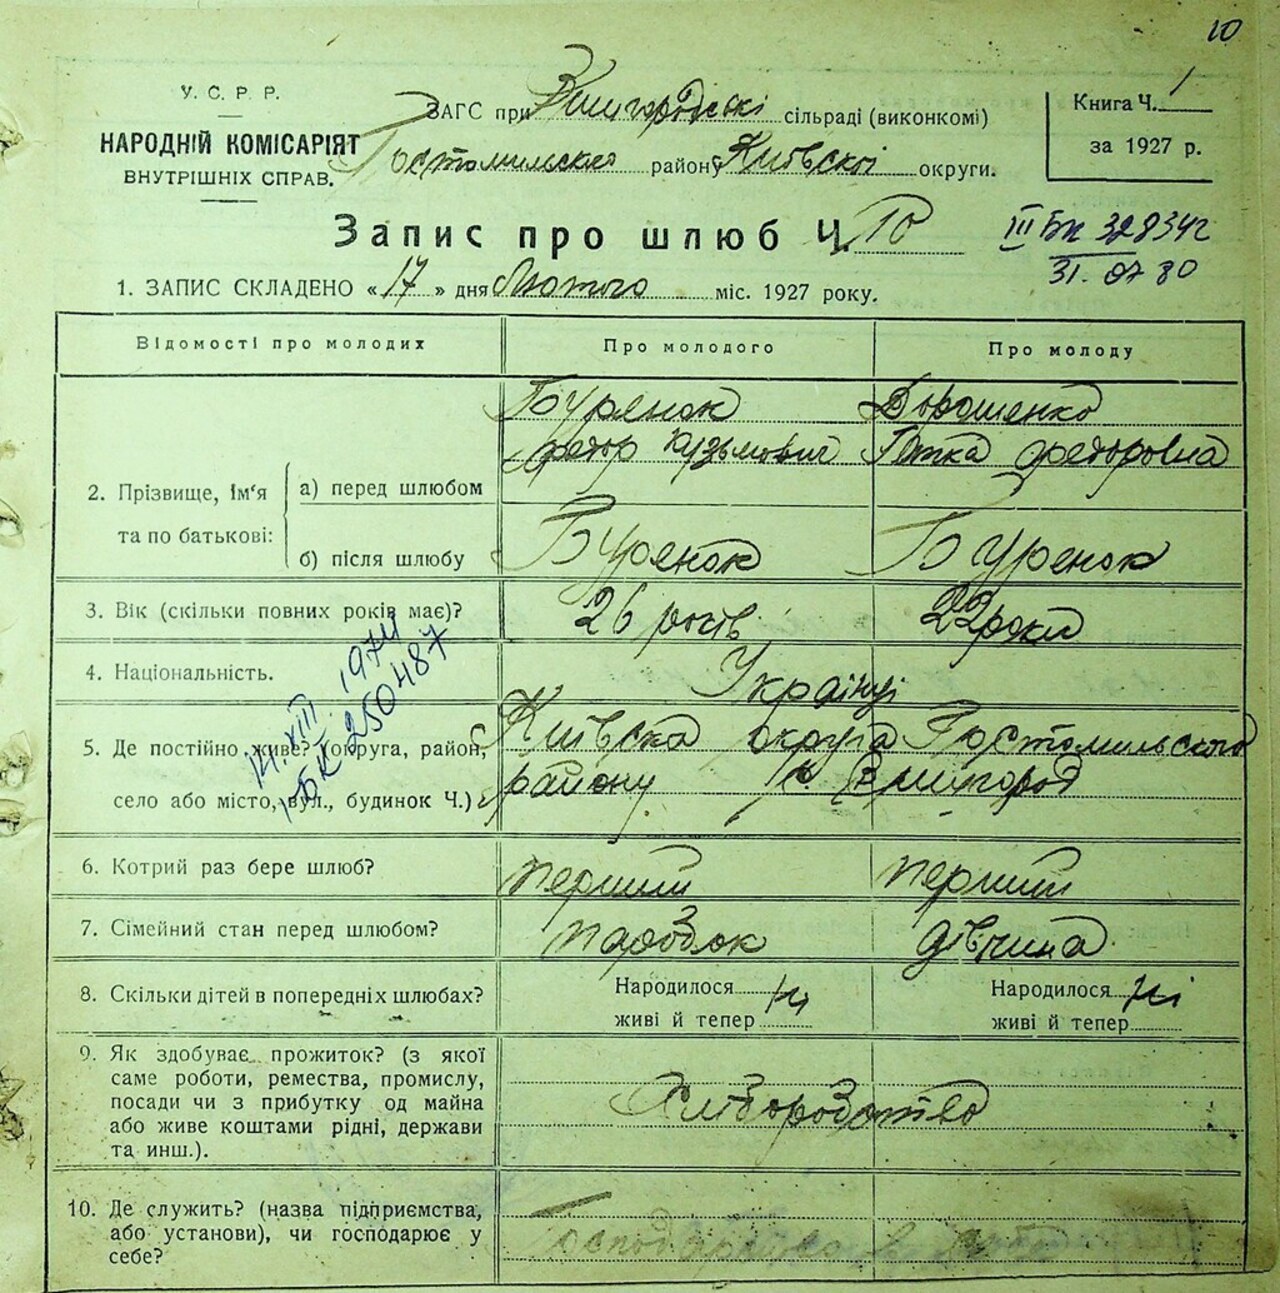 10
У. С. Р. Р.
НАРОДНІЙ КОМІСАРІЯТ
ВНУТРІШНІХ СПРАВ.
ЗАГС при Вишгородські сільраді (виконкомі)
Гостомильського району Київскої округи.
Книга Ч. 1
за 1927 р.
Запис про шлюб Ч. 10
III БК 328342
31. 07 80
1. ЗАПИС СКЛАДЕНО «17» дня Лютого міс. 1927 року.
Відомості про молодих
Про молодого
Про молоду
2. Прізвище, ім'я та по батькові:
а) перед шлюбом
Буренок
Федор Кузьмович
Дорошенко
Федоровна
б) після шлюбу
Буренок
Буренок
3. Вік (скільки повних років має)?
26 років
22 роки
4. Національність.
Українці
14. VIII 1974
І-БК 250487
5. Де постійно живе? (округа, район,
село або місто, вул., будинок Ч.)
Київска округа Гостомильського
району с. Вишгород
6. Котрий раз бере шлюб?
перший
перший
7. Сімейний стан перед шлюбом?
парубок
дівчина
8. Скільки дітей в попередніх шлюбах?
Народилося
живі й тепер
Народилося ні
живі й тепер
9. Як здобуває прожиток? (з якої
саме роботи, ремества, промислу,
посади чи з прибутку од майна
або живе коштами рідні, держави
та инш.).
Хліборобство
10. Де служить? (назва підприємства,
або установи), чи господарює у
себе?